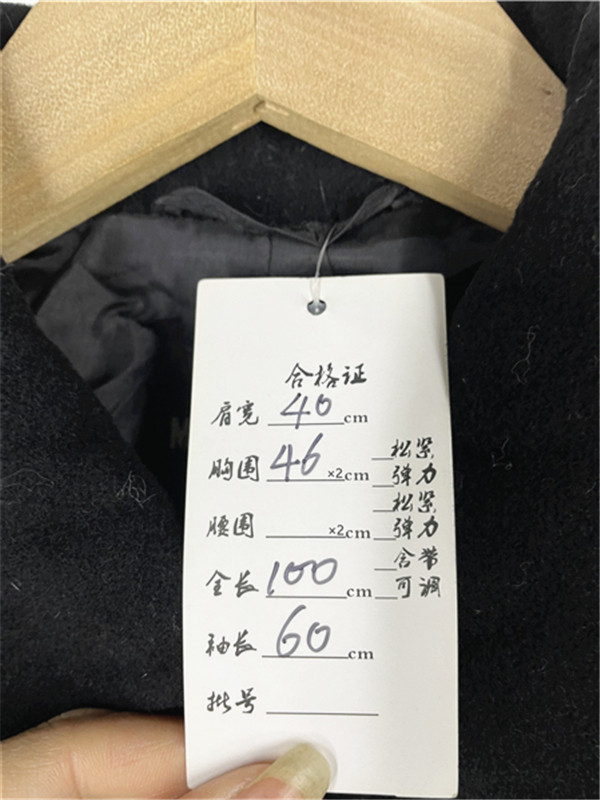 合格证
肩宽 40 cm
胸围 46 ×2cm 松紧 弹力
腰围 ×2cm 松紧 弹力
全长 100 cm 含带 可调
袖长 60 cm
批号